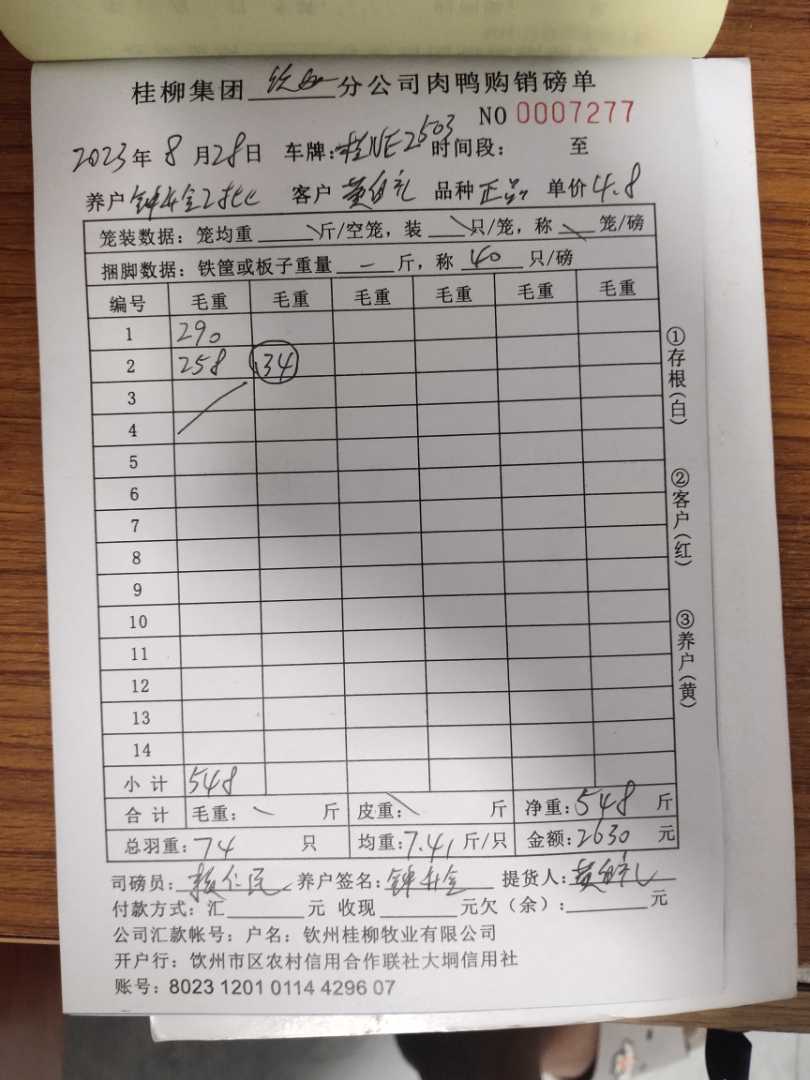 桂柳集团 钦州 分公司肉鸭购销磅单
NO 0007277
2023年 8 月 28日 车牌:桂NE2503 时间段: 至
养户 钟升全2批 客户 黄 礼 品种 正品 单价 4.8
笼装数据:笼均重 \ 斤/空笼,装 \ 只/笼,称 \ 笼/磅
捆脚数据:铁筐或板子重量 — 斤,称 40 只/磅
编号 毛重 毛重 毛重 毛重 毛重 毛重
1 290
2 258 34
3
4
5
6
7
8
9
10
11
12
13
14
小 计 548
合 计 毛重: \ 斤 皮重: \ 斤 净重:548 斤
总羽重:74 只 均重:7.41 斤/只 金额:2630 元
司磅员: 仁民 养户签名:钟升全 提货人:黄 礼
付款方式:汇 元 收现 元欠(余): 元
公司汇款帐号:户名:钦州桂柳牧业有限公司
开户行:饮州市区农村信用合作联社大垌信用社
账号:8023 1201 0114 4296 07
①存根(白)
②客户(红)
③养户(黄)